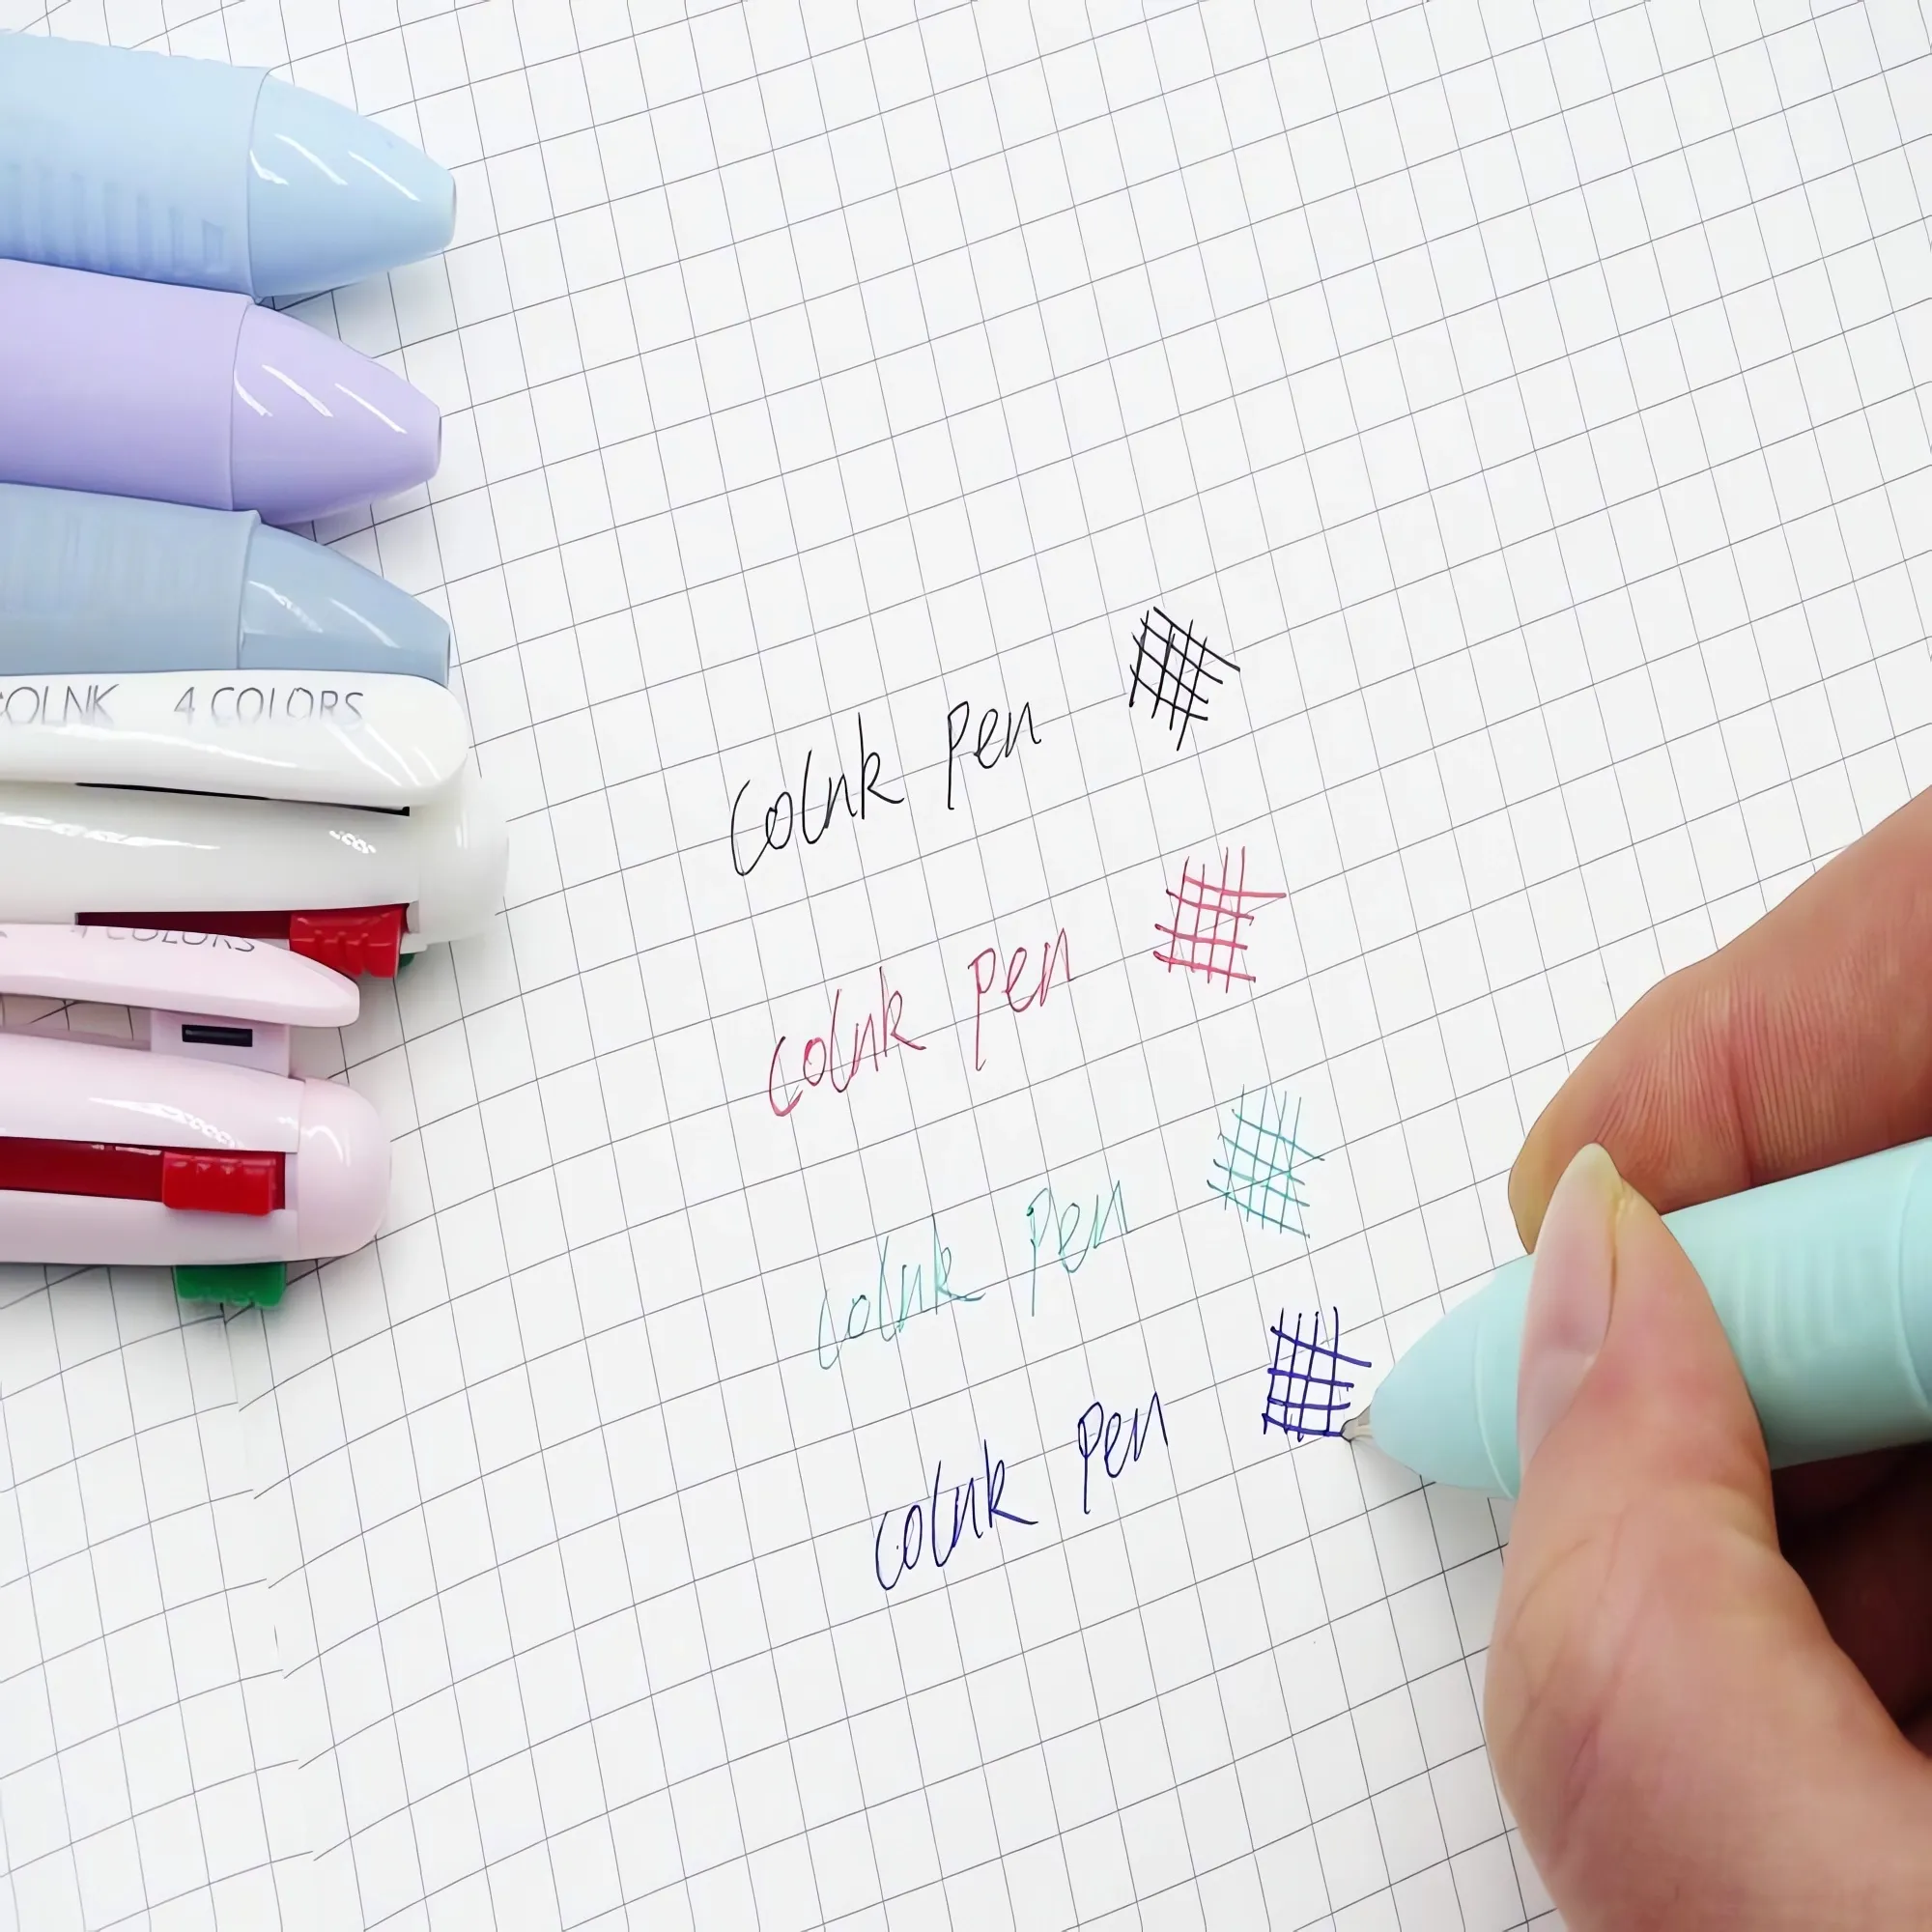 OLNK 4 COLORS
4 COLORS
colnk Pen
colnk Pen
colnk Pen
colnk Pen